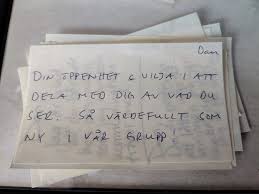 Dan
DIN ÖPPENHET & VILJA I ATT
DELA MED DIG AV VAD DU
SER. SÅ VÄRDEFULLT SOM
NY I VÅR GRUPP!